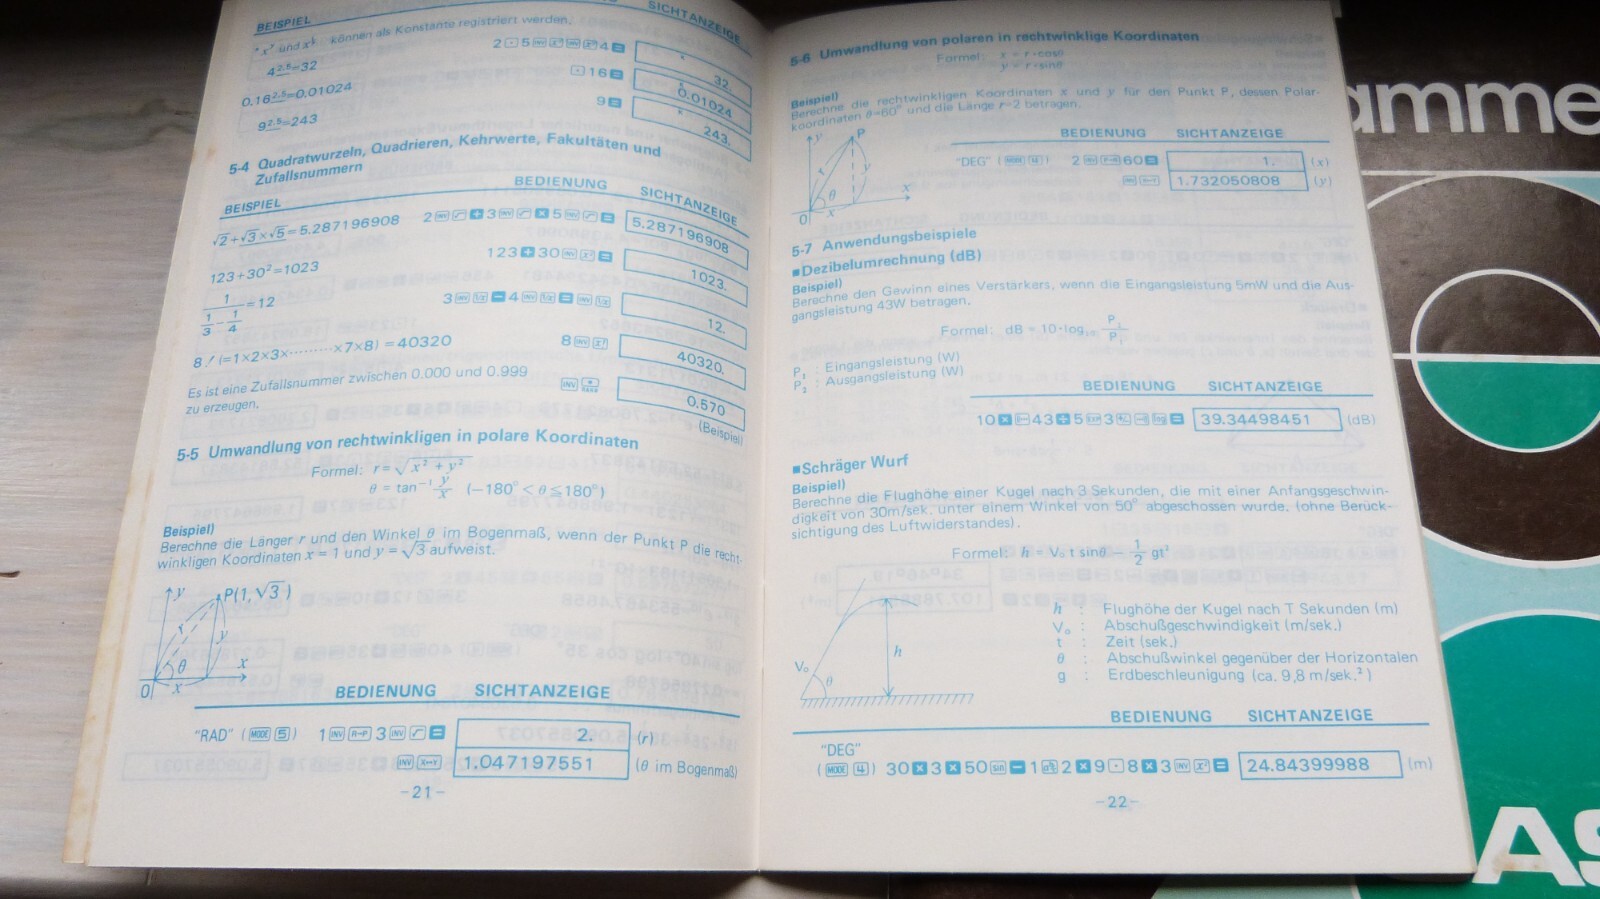 BEISPIEL
SICHTANZEIGE
*xʸ und x^1/y können als Konstante registriert werden.
4^2.5=32
2 ⊡ 5 INV xʸ INV xʸ 4 =
K 32.
0.16^2.5=0.01024
⊡ 16 =
K 0.01024
9^2.5=243
9 =
K 243.
5-4 Quadratwurzeln, Quadrieren, Kehrwerte, Fakultäten und
Zufallsnummern
BEISPIEL BEDIENUNG SICHTANZEIGE
√2+√3×√5=5.287196908 2 INV √ + 3 INV √ × 5 INV √ = 5.287196908
123+30²=1023 123 + 30 INV x² = 1023.
1/(1/3−1/4)=12 3 INV 1/x − 4 INV 1/x = INV 1/x 12.
8! (=1×2×3×·········×7×8) =40320 8 INV x! 40320.
Es ist eine Zufallsnummer zwischen 0.000 und 0.999
zu erzeugen.
INV • RAN# 0.570
(Beispiel)
5-5 Umwandlung von rechtwinkligen in polare Koordinaten
Formel: r=√x²+y²
θ = tan⁻¹ y/x (−180°<θ≦180°)
Beispiel)
Berechne die Länger r und den Winkel θ im Bogenmaß, wenn der Punkt P die recht-
winkligen Koordinaten x = 1 und y = √3 aufweist.
y
P(1,√3)
r
y
θ
x
0
x
BEDIENUNG SICHTANZEIGE
"RAD" (MODE 5) 1 INV R→P 3 INV √ = 2. (r)
INV X↔Y 1.047197551 (θ im Bogenmaß)
−21−
5-6 Umwandlung von polaren in rechtwinklige Koordinaten
Formel: x = r·cosθ
y = r·sinθ
Beispiel)
Berechne die rechtwinkligen Koordinaten x und y für den Punkt P, dessen Polar-
koordinaten θ=60° und die Länge r=2 betragen.
y
P
r
y
θ
x
0
x
BEDIENUNG SICHTANZEIGE
"DEG" (MODE 4) 2 INV P→R 60 = 1. (x)
INV X↔Y 1.732050808 (y)
5-7 Anwendungsbeispiele
■Dezibelumrechnung (dB)
Beispiel)
Berechne den Gewinn eines Verstärkers, wenn die Eingangsleistung 5mW und die Aus-
gangsleistung 43W betragen.
Formel: dB = 10·log₁₀ P₂/P₁
P₁ : Eingangsleistung (W)
P₂ : Ausgangsleistung (W)
BEDIENUNG SICHTANZEIGE
10 × [(--- 43 ÷ 5 EXP 3 +/− ---)] log = 39.34498451 (dB)
■Schräger Wurf
Beispiel)
Berechne die Flughöhe einer Kugel nach 3 Sekunden, die mit einer Anfangsgeschwin-
digkeit von 30m/sek. unter einem Winkel von 50° abgeschossen wurde. (ohne Berück-
sichtigung des Luftwiderstandes).
Formel: h = V₀ t sinθ − 1/2 gt²
V₀
θ
h
h : Flughöhe der Kugel nach T Sekunden (m)
V₀ : Abschußgeschwindigkeit (m/sek.)
t : Zeit (sek.)
θ : Abschußwinkel gegenüber der Horizontalen
g : Erdbeschleunigung (ca. 9,8 m/sek.²)
BEDIENUNG SICHTANZEIGE
"DEG"
(MODE 4) 30 × 3 × 50 sin − 1 a b/c 2 × 9 ⊡ 8 × 3 INV x² = 24.84399988 (m)
−22−
amme
AS